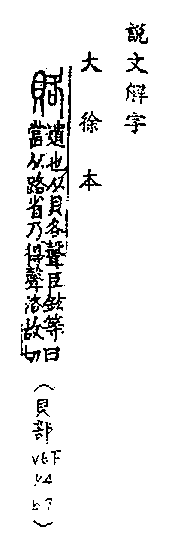 説文解字
大徐本
賂
遺也从貝各聲臣鉉等曰
當从路省乃得聲洛故切
(貝部